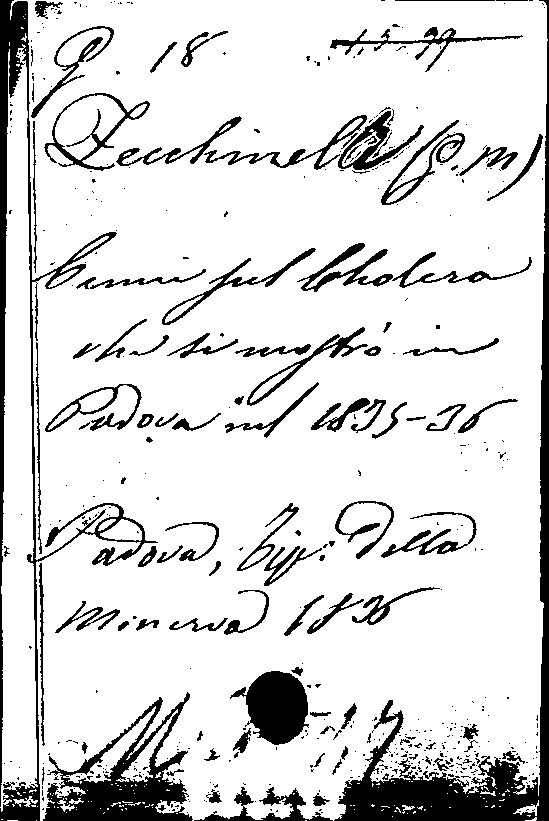 G. 18 1.5.99
Zecchinelli (G. M)
Cenni sul Cholera
che si mostrò in
Padova nel 1835-36
Padova, Tip: della
Minerva 1836